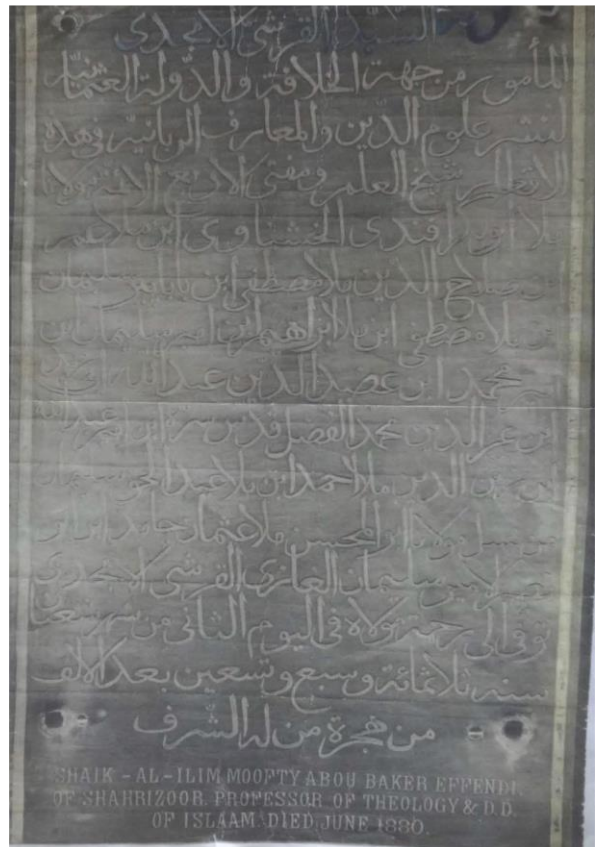 السيد القرشي الامجدي
المأمور من جهة الخلافة والدولة العثمانية
لنشر علوم الدين والمعارف الربانية في هذه
الاقاليم شيخ العلم ومفتي الاربع الائمة مولانا
افندي الخشناوي ابن ملا عمر
ابن صلاح الدين ملا مصطفى ابن سليمان
ابن ملا مصطفى ابن ملا ابراهيم ابن امير سليمان ابن
محمد ابن عضد الدين عبد الله
ابن عز الدين محمد الفضل قدس سره ابن امير عبد الله
الدين ملا احمد ابن ملا عبد الحق
من نسل مولانا ابو المحسن ملا حامد ابن ابو
سليمان الغازي القرشي الامجدي
توفي الى رحمة مولاه في اليوم الثاني من شهر شعبان
سنه ثلاثمائة وسبع وتسعين بعد الالف
من هجرة من له الشرف
SHAIK - AL - ILIM MOOFTY ABOU BAKER EFFENDI.
OF SHAHRIZOOR. PROFESSOR OF THEOLOGY & D.D.
OF ISLAAM. DIED JUNE 1880.